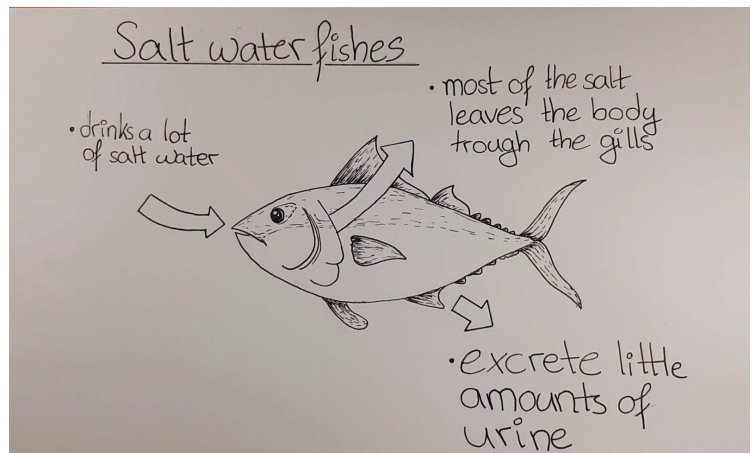 Salt water fishes
• drinks a lot
of salt water
• most of the salt
leaves the body
trough the gills
• excrete little
amounts of
urine